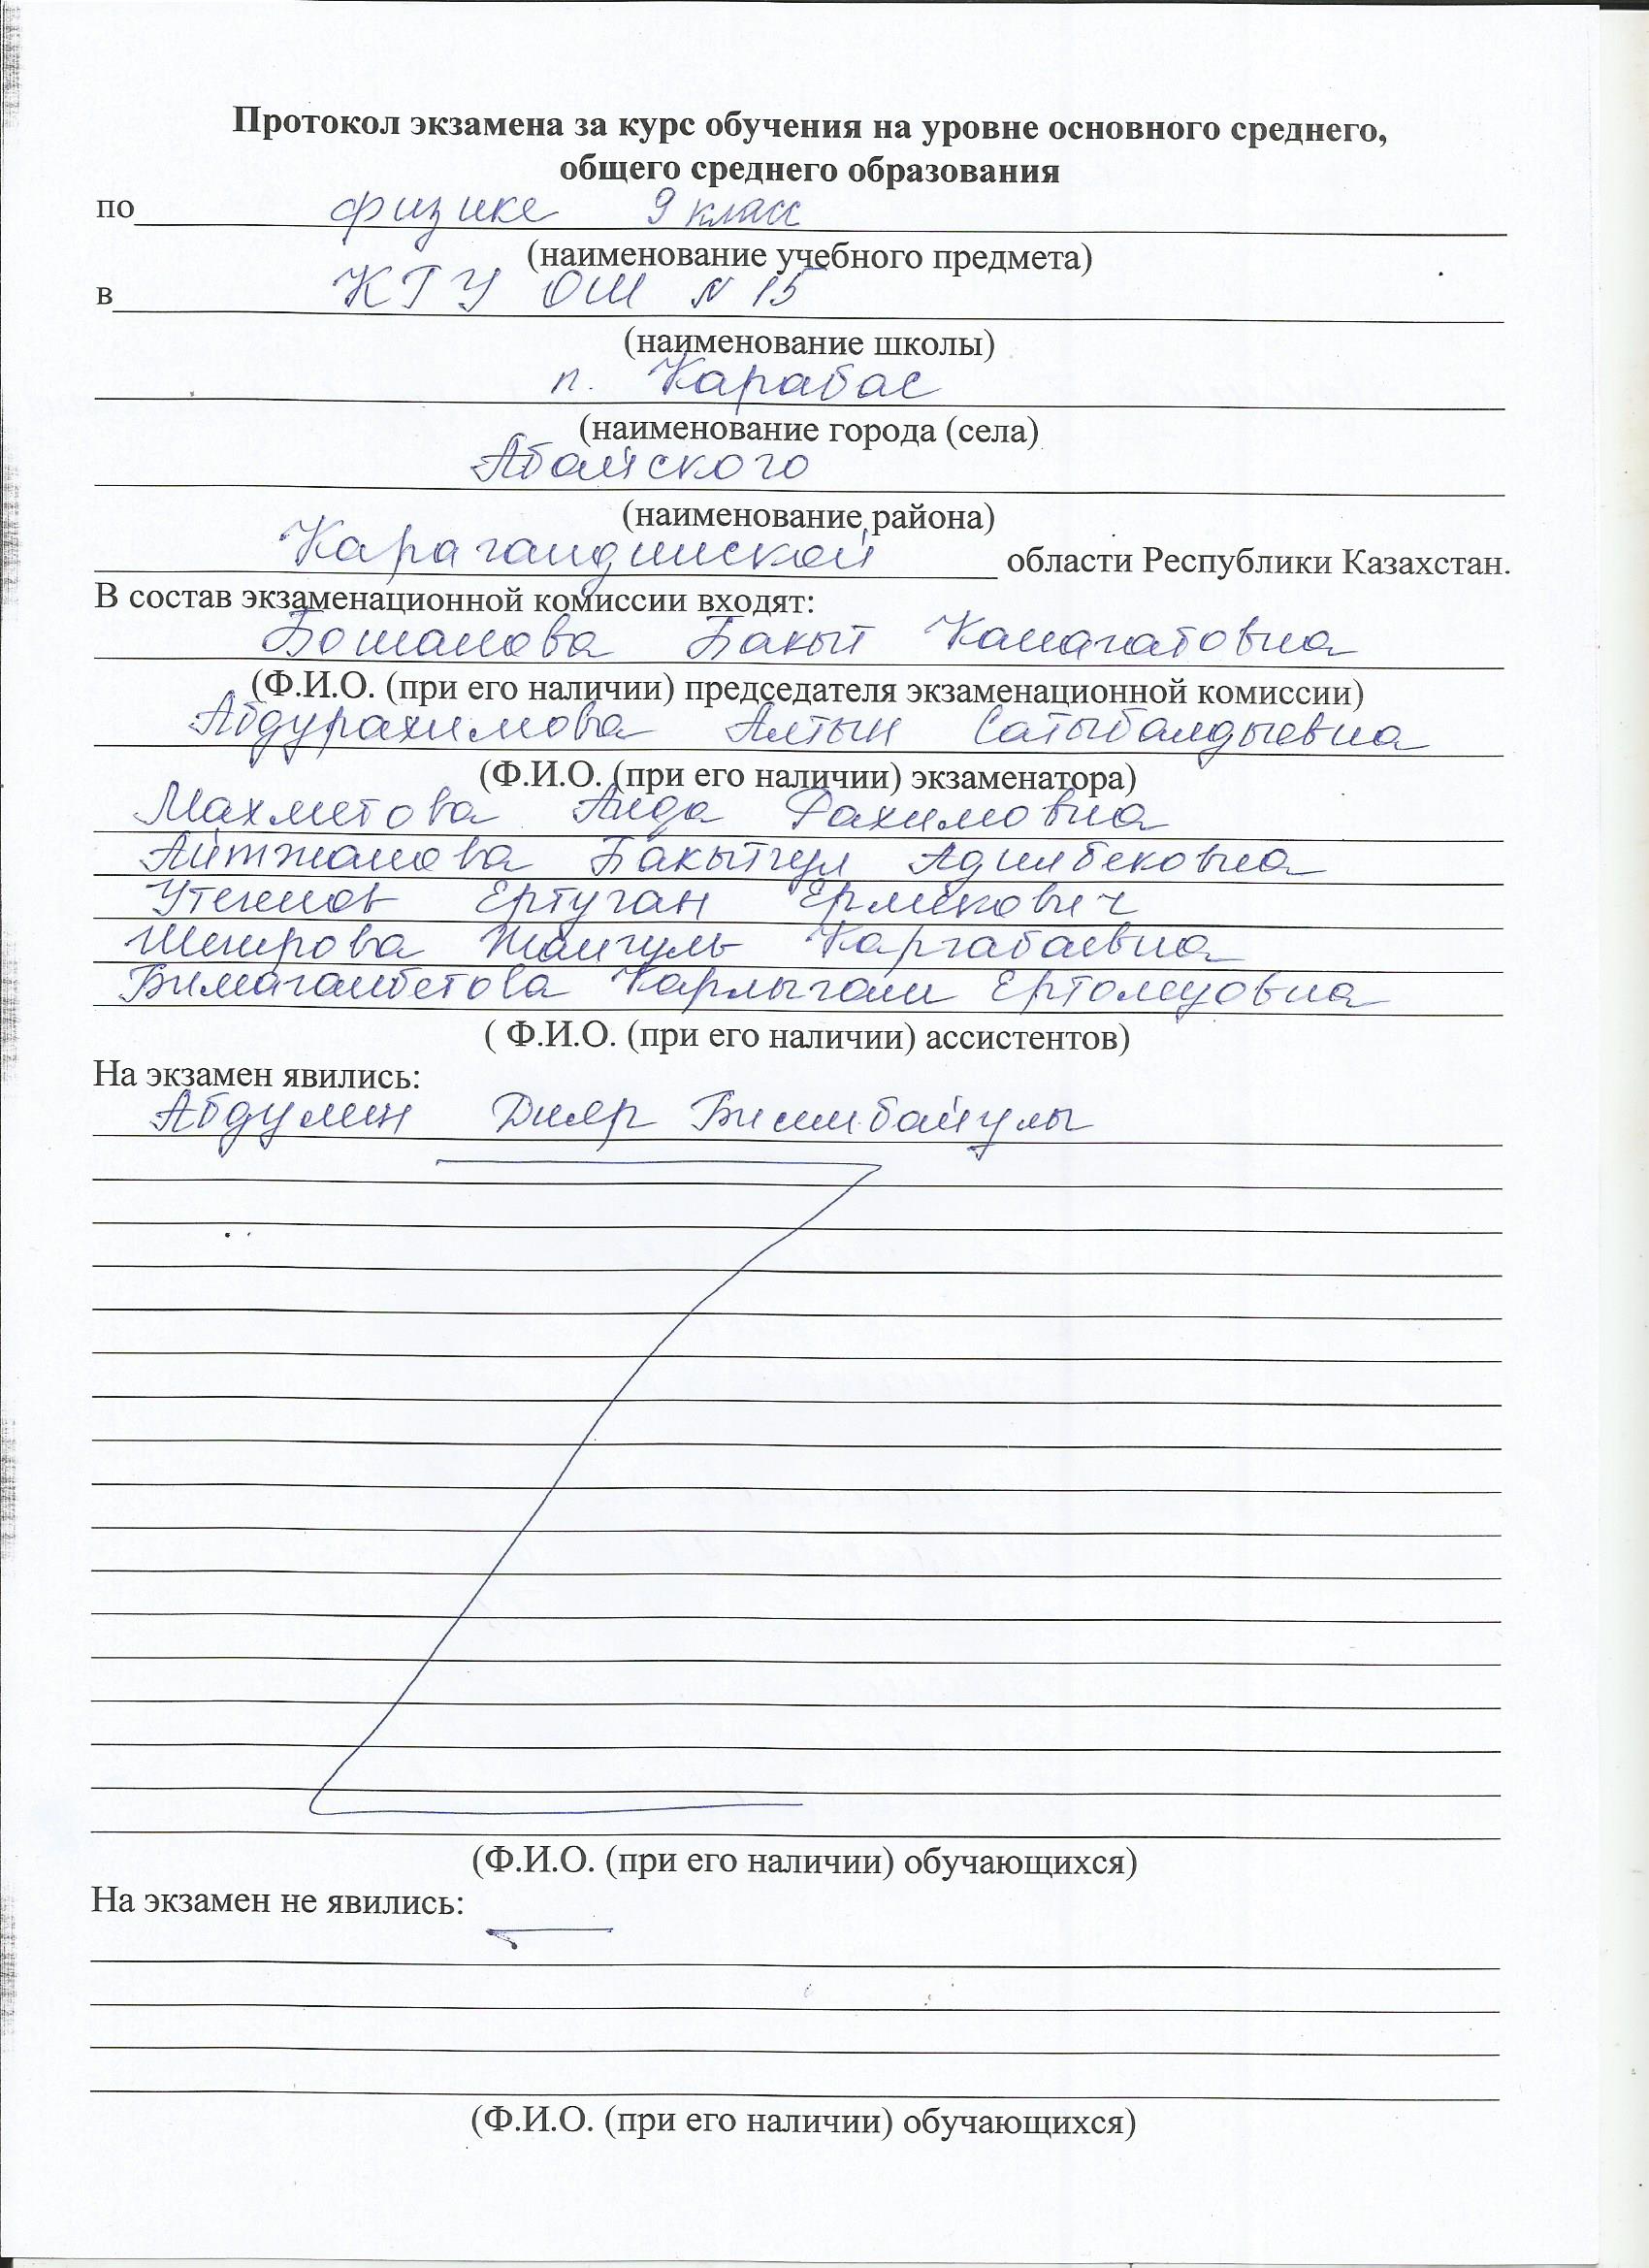 Протокол экзамена за курс обучения на уровне основного среднего,
общего среднего образования
по физике 9 класс
(наименование учебного предмета)
в КГУ ОШ N 15
(наименование школы)
п. Карабас
(наименование города (села)
Абайского
(наименование района)
Карагандинской области Республики Казахстан.
В состав экзаменационной комиссии входят:
Бошанова Бакыт Канагатовна
(Ф.И.О. (при его наличии) председателя экзаменационной комиссии)
Абдурахимова Алтын Сатыбалдыевна
(Ф.И.О. (при его наличии) экзаменатора)
Махметова Аида Рахимовна
Айтжанова Бакытгул Адилбековна
Утенов Ертуган Ермекович
Жангуль Каргабаевна
Бимагамбетова Карлыгаш
( Ф.И.О. (при его наличии) ассистентов)
На экзамен явились:
Абдулин Дияр Бисимбайулы
(Ф.И.О. (при его наличии) обучающихся)
На экзамен не явились:
(Ф.И.О. (при его наличии) обучающихся)